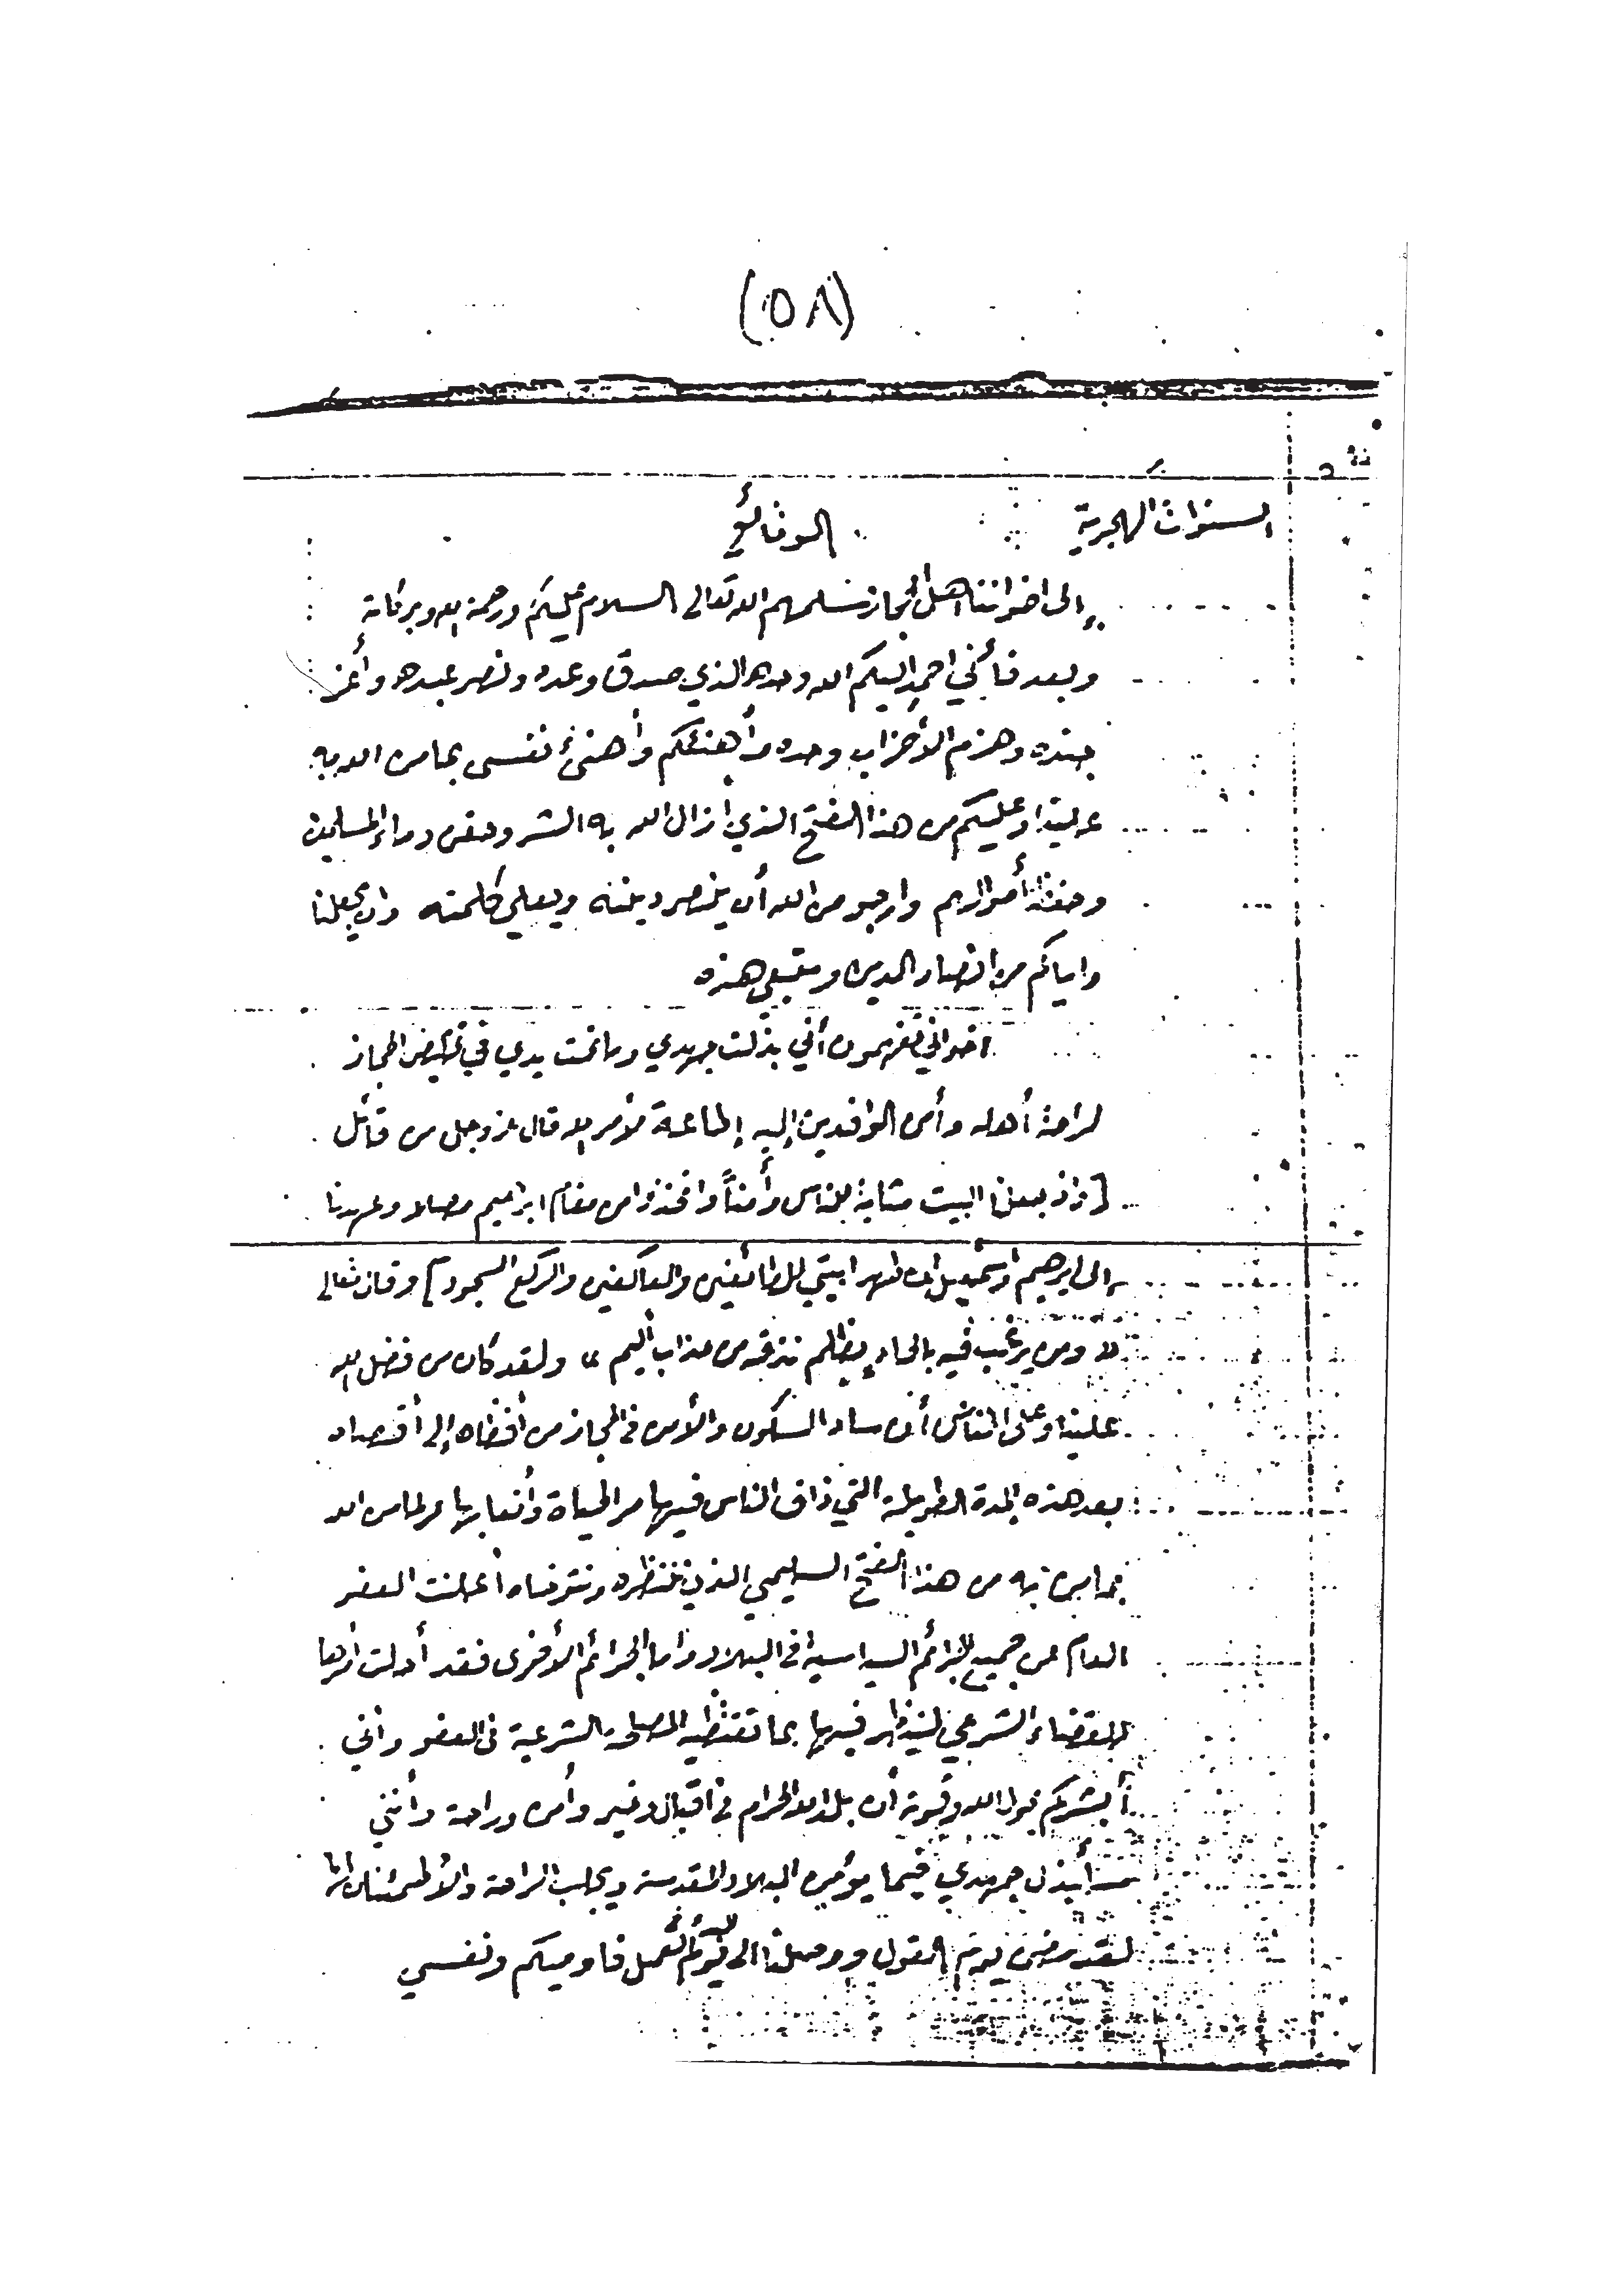 (٥٨)
السنوات الهجرية الوقائع
إلى اخواننا أهل الحجاز سلمهم الله تعالى السلام عليكم ورحمة الله وبركاته
وبعد فأني احمد اليكم الله وحده الذي صدق وعده ونصر عبده وأعز
جنده وهزم الأحزاب وحده وأهنئكم وأهنئ نفسي بما من الله به
علينا وعليكم من هذا الفتح الذي ازال الله به الشر وحقن دماء المسلمين
وحفظ أموالهم وارجو من الله أن ينصر دينه ويعلي كلمته وان يجعلنا
واياكم من انصار الدين ومتبعي هذه
اخواني تفهمون أني بذلت جهدي وما تحت يدي في الحجاز
لراحة أهله وأمن الوافدين إليه إطاعة لأمر الله قال عز وجل من قائل
[واذ جعلنا البيت مثابة للناس وأمناً واتخذوا من مقام ابراهيم مصلا وعهدنا
إلى ابرهيم واسمعيل ان طهرا بيتي للطائفين والعاكفين والركع السجود] وقال تعالى
« ومن يرغب فيه بالحاد بظلم نذقه من عذاب أليم » ولقد كان من فضل الله
علينا وعلى الناس أن ساد السكون والأمن في الحجاز من أقصاه إلى أقصاه
بعد هذه المدة الطويلة التي ذاق الناس فيها مر الحياة وأتعابها ولما من الله
بما من به من هذا الفتح السليمي الذي ننتظره ونتوخاه أعلنت العفو
العام عن جميع الجرائم السياسية في البلاد وأما الجرائم الأخرى فقد أحلت أمرها
للقضاء الشرعي لينظر فيها بما تقتظيه المصلحة الشرعية في العفو وأني
أبشركم بحول الله وقوته أن بلد الله الحرام في اقبال وخير وأمن وراحة وأنني
سأبذل جهدي فيما يؤمن البلاد المقدسة ويجلب الراحة والأطمئنان لها
لقد مضى يوم القول ووصلنا الى يوم العمل فاوصيكم ونفسي